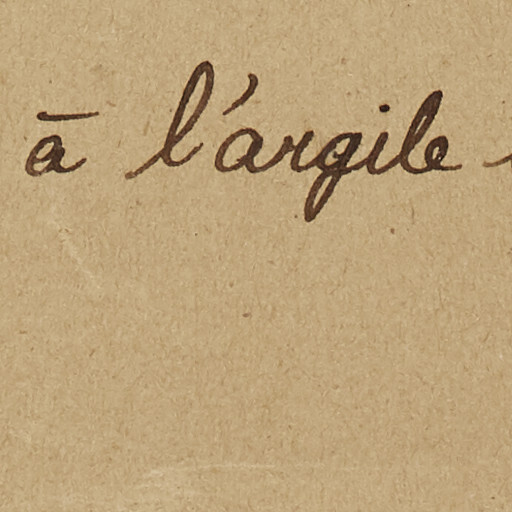 à l'argile